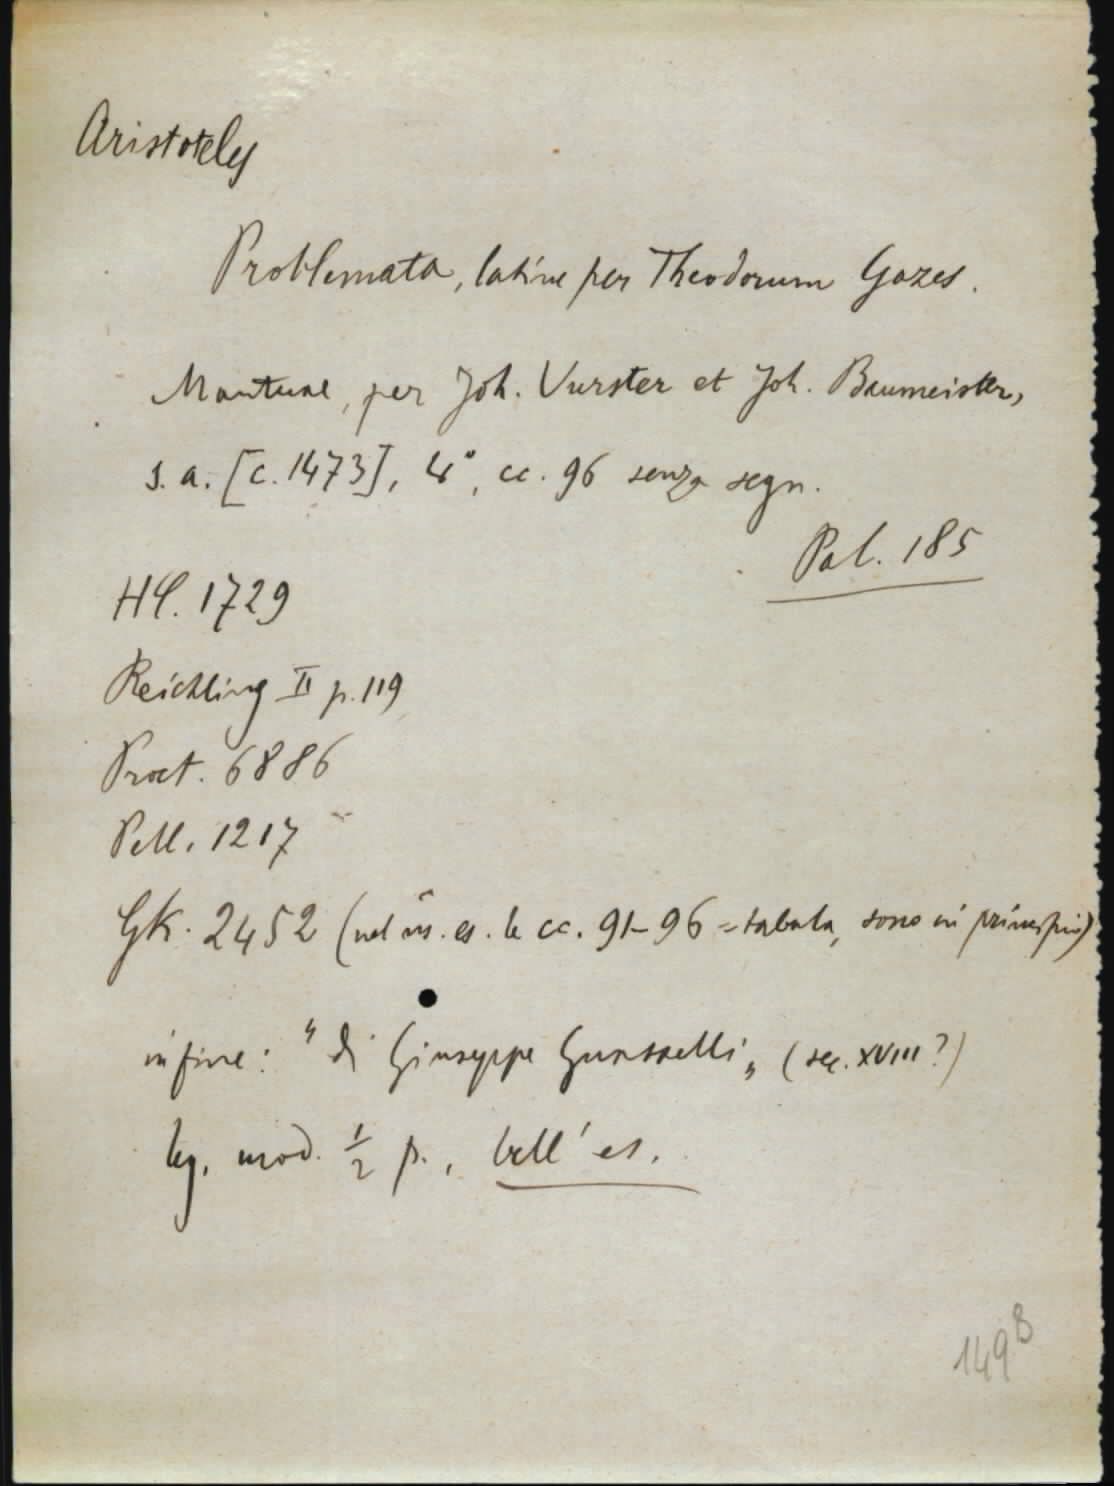 Aristoteles
Problemata, latine per Theodorum Gazes.
Mantuae, per Joh. Vurster et Joh. Baumeister,
s. a. [c. 1473], 4°, cc. 96 senza segn.
Pal. 185
HC. 1729
Reichling II p. 119
Proct. 6886
Pell. 1217
GK. 2452 (nel ns. es. le cc. 91-96 = tabula, sono in principio)
in fine: "di Giuseppe „ (sec. XVIII?)
leg. mod. 1/2 p., bell' es.
149 B